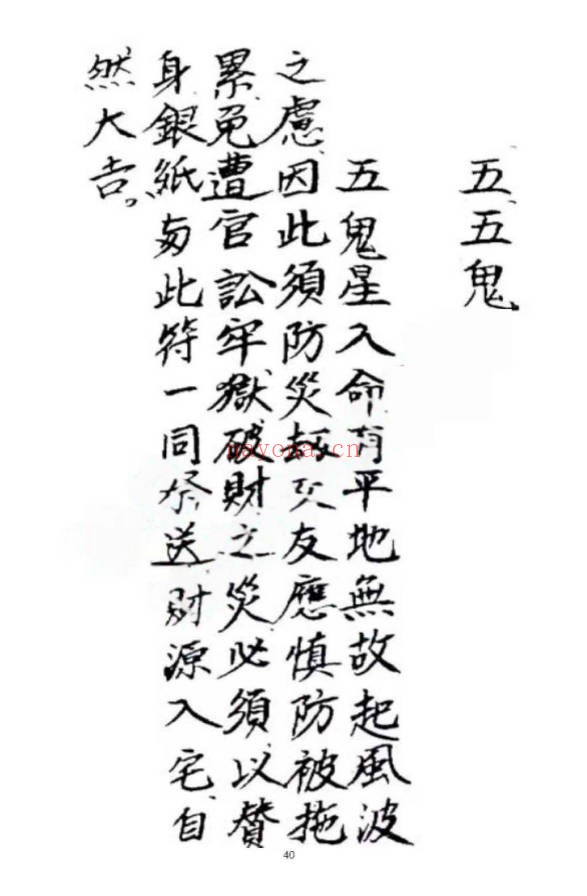 五、五鬼
五鬼星入命有平地無故起風波
之慮因此須防災劫交友應慎防被拖
累免遭官訟牢獄破財之災必須以賛
身銀紙与此符一同祭送財源入宅自
然大吉。
nayona.cn
40